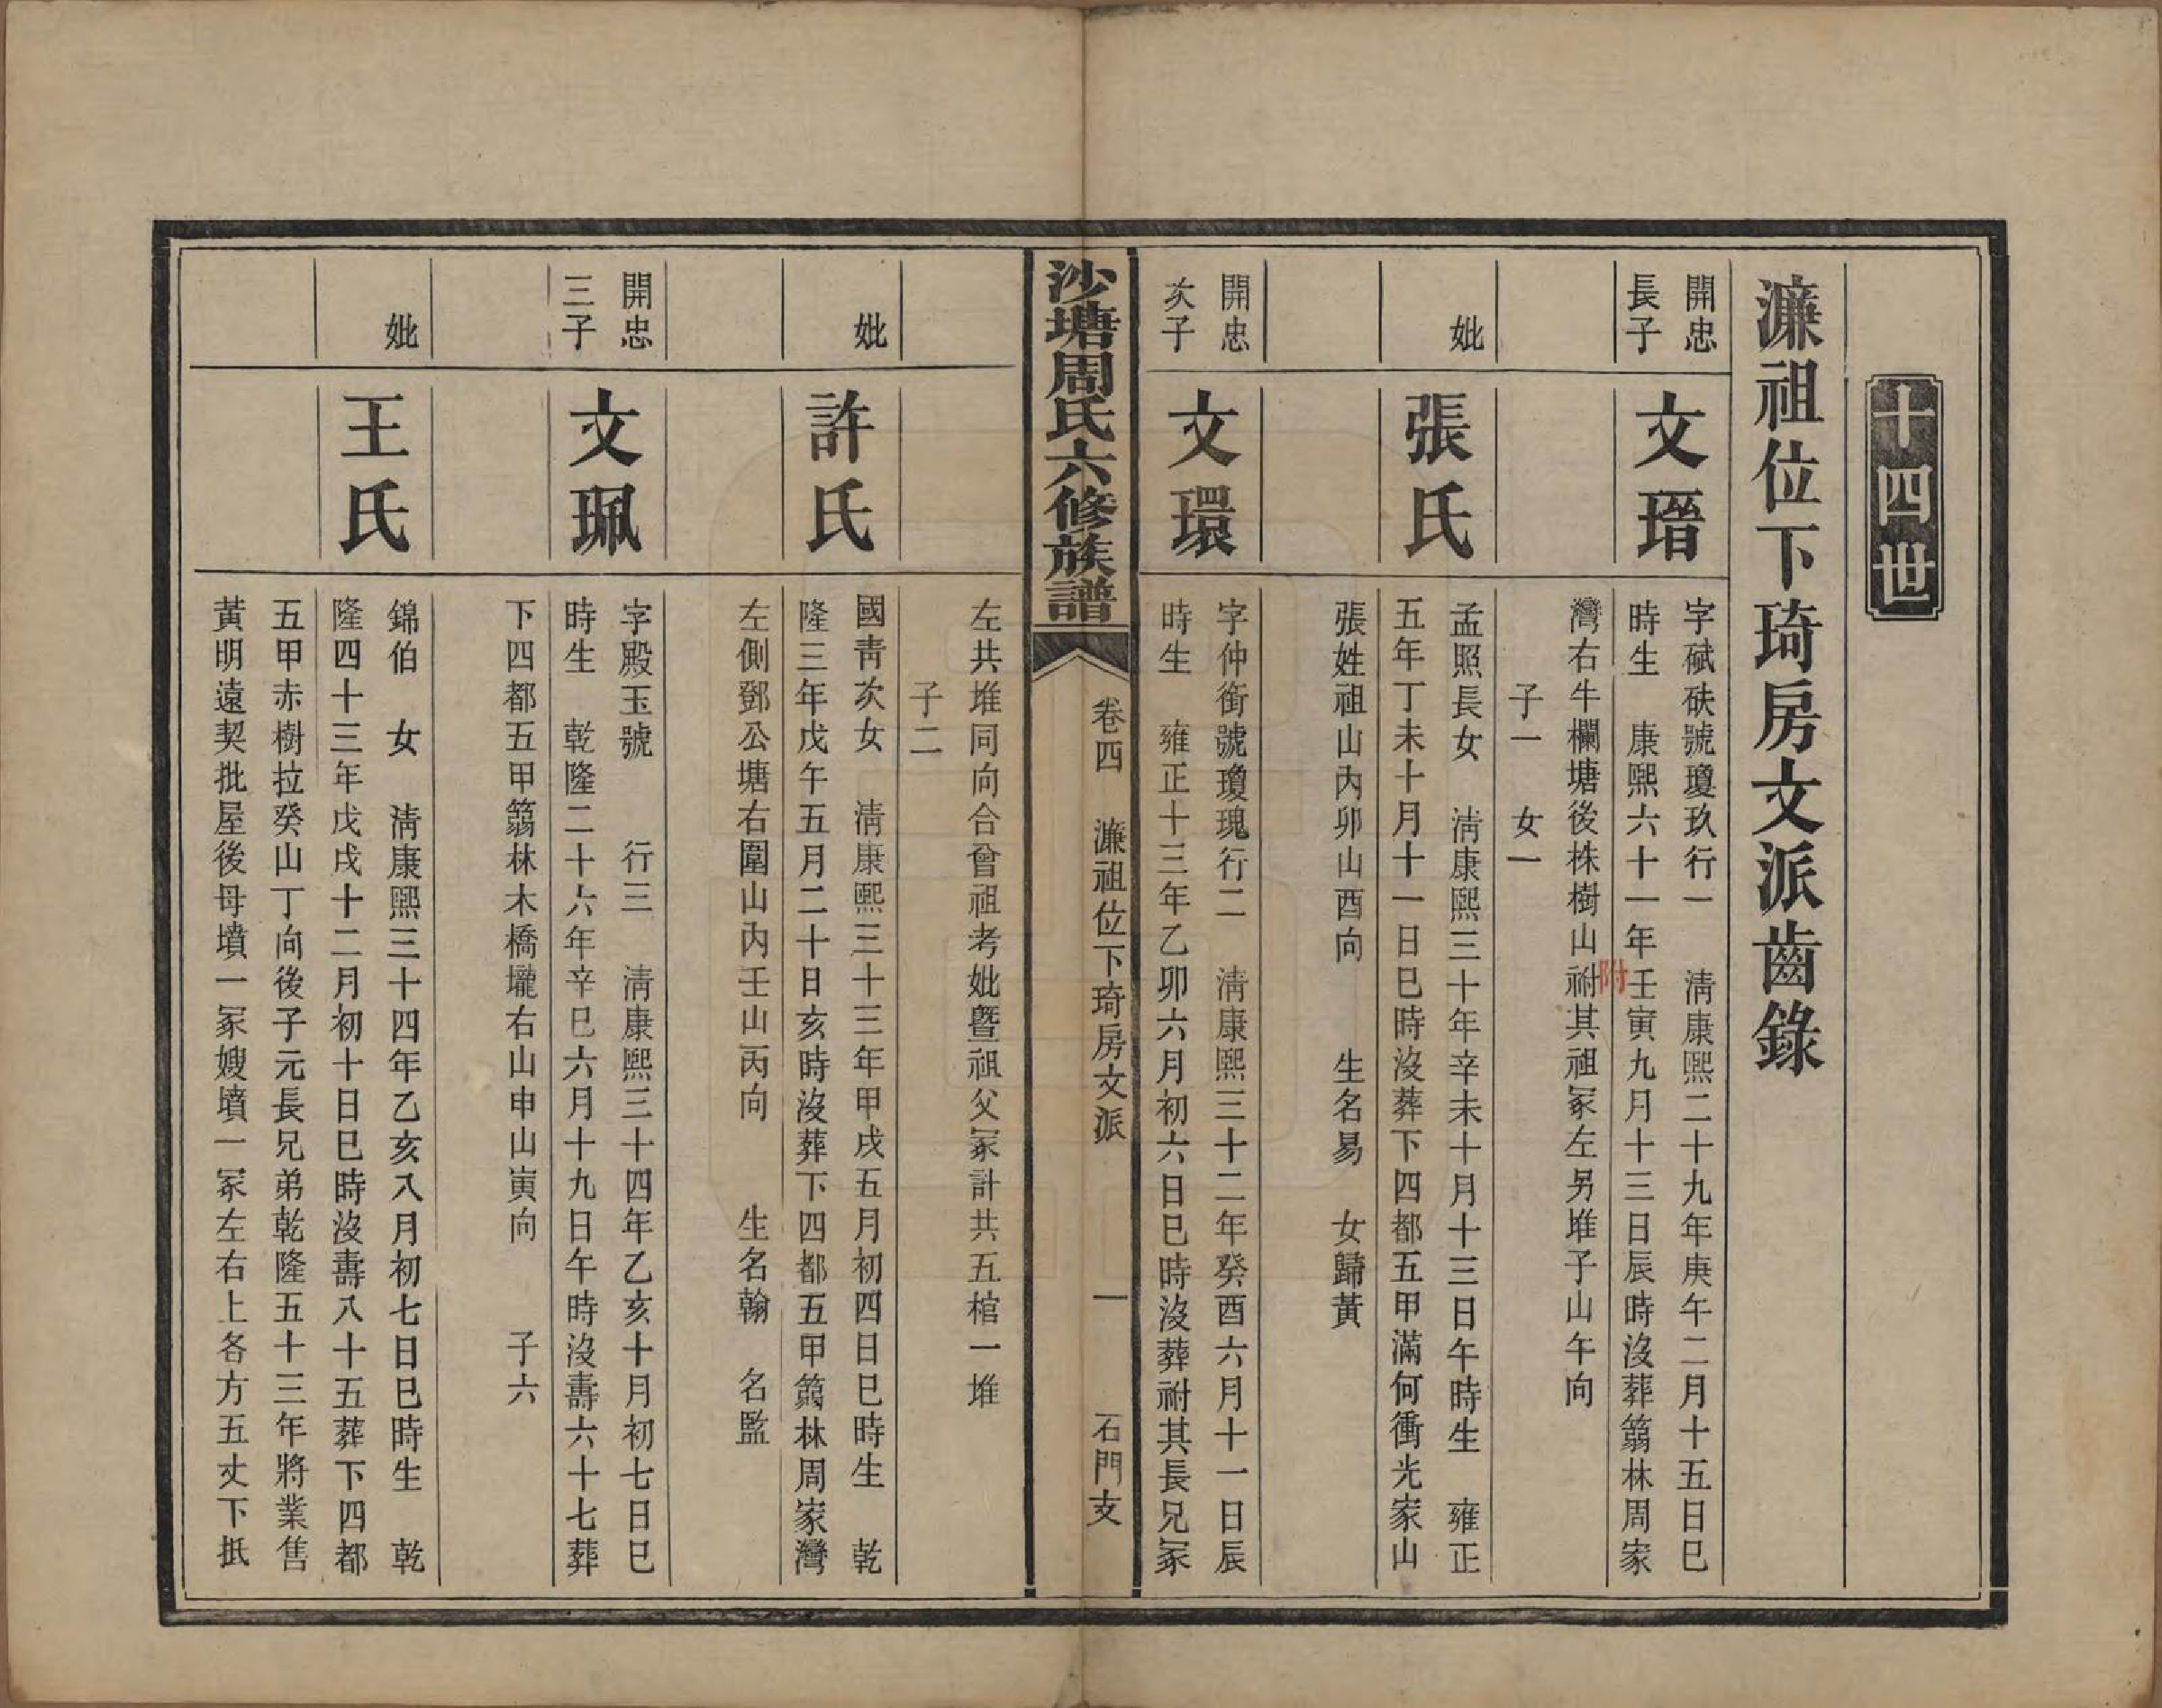 十四世
濂祖位下琦房文派齒錄
開忠
長子
文瑨
字碔砆號瓊玖行一　淸康熙二十九年庚午二月十五日巳
時生　康熙六十一年壬寅九月十三日辰時沒葬䈵林周家
灣右牛欄塘後株樹山祔其祖冢左另堆子山午向
附
子一　女一
妣
張氏
孟照長女　淸康熙三十年辛未十月十三日午時生　雍正
五年丁未十月十一日巳時沒葬下四都五甲滿何衝光家山
張姓祖山內卯山酉向　　生名易　女歸黃
開忠
次子
文環
字仲衡號瓊瑰行二　淸康熙三十二年癸酉六月十一日辰
時生　雍正十三年乙卯六月初六日巳時沒葬祔其長兄冢
沙塘周氏六修族譜
卷四　濂祖位下琦房文派
一
石門支
左共堆同向合曾祖考妣曁祖父冢計共五棺一堆
子二
妣
許氏
國靑次女　淸康熙三十三年甲戌五月初四日巳時生　乾
隆三年戊午五月二十日亥時沒葬下四都五甲䈵林周家灣
左側鄧公塘右圍山內壬山丙向　　生名翰　名監
開忠
三子
文珮
字殿玉號　　行三　淸康熙三十四年乙亥十月初七日巳
時生　乾隆二十六年辛巳六月十九日午時沒壽六十七葬
下四都五甲䈵林木橋壠右山申山寅向　　子六
妣
王氏
錦伯　女　淸康熙三十四年乙亥八月初七日巳時生　乾
隆四十三年戊戌十二月初十日巳時沒壽八十五葬下四都
五甲赤樹拉癸山丁向後子元長兄弟乾隆五十三年將業售
黃明遠契批屋後母墳一冢嫂墳一冢左右上各方五丈下抵